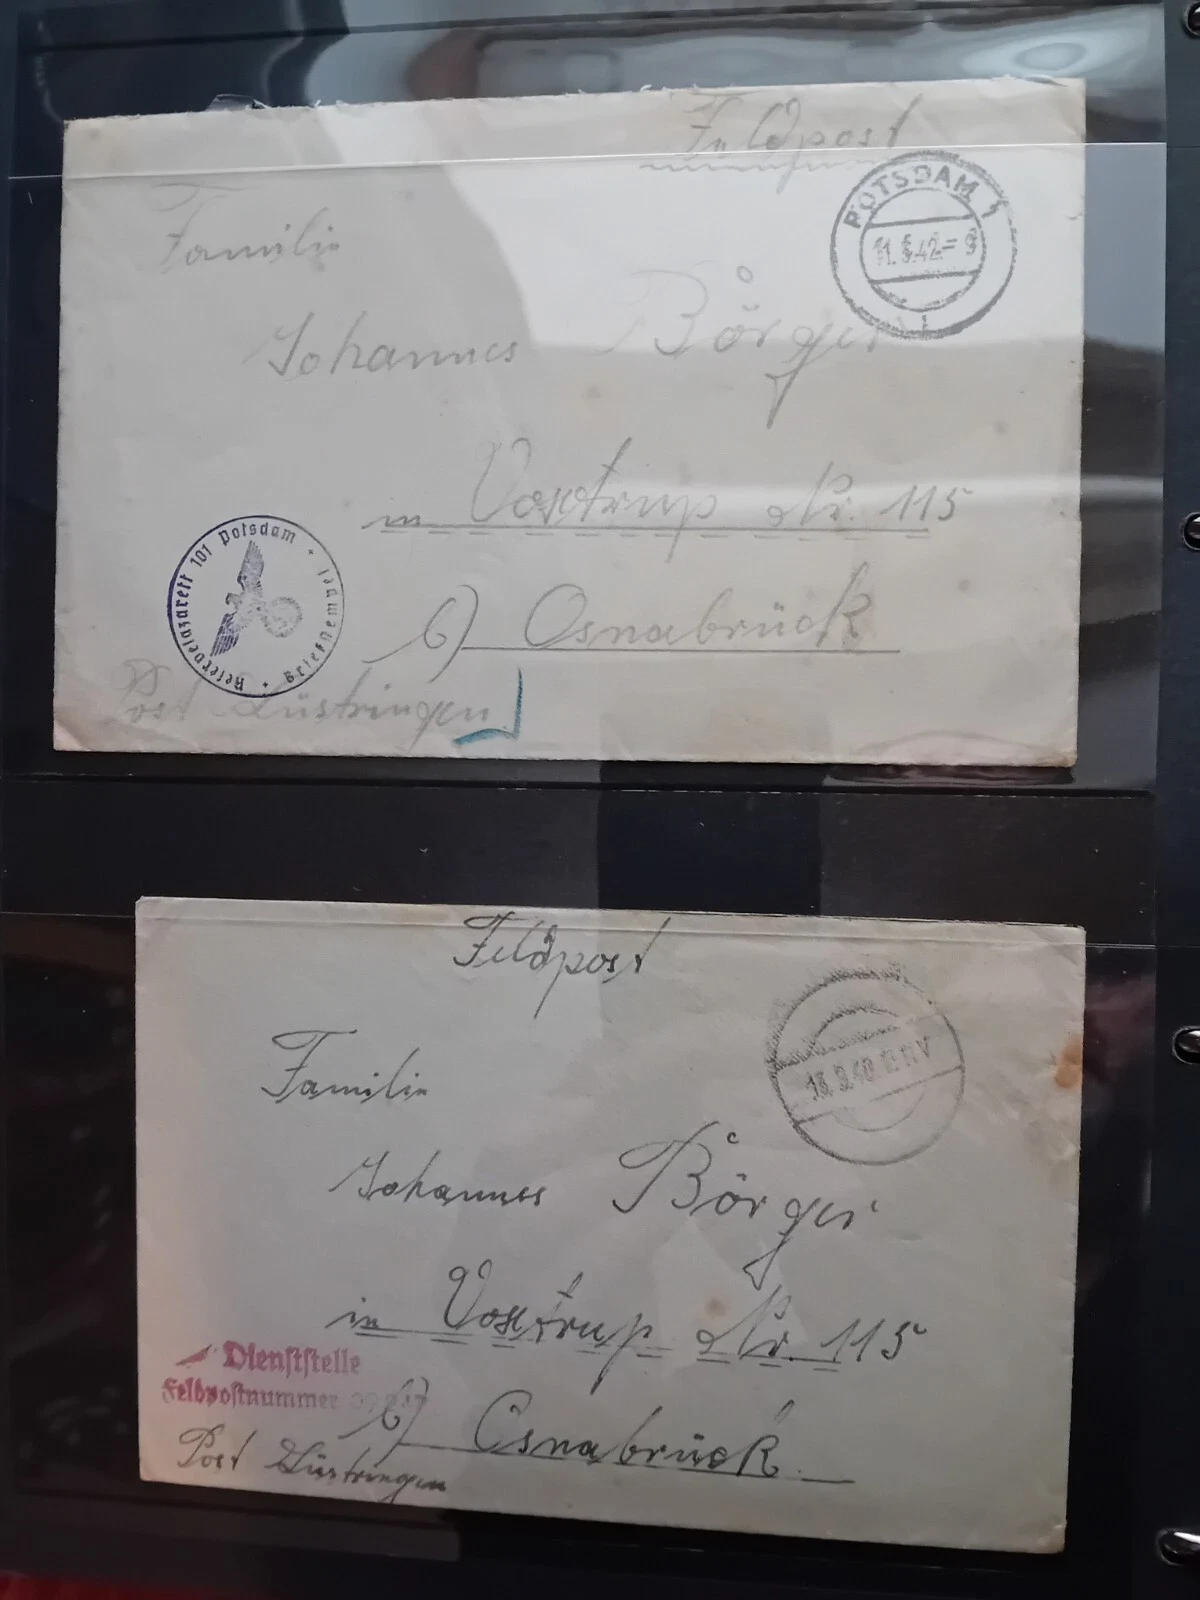 Feldpost
POTSDAM 1
11.5.42.- 9
Familie
Johannes Börger
in Voxtrup Nr. 115
b) Osnabrück
Reservelazarett 101 Potsdam + Briefstempel +
Post Lüstringen
Feldpost
Familie
Johannes Börger
in Voxtrup Nr. 115
Dienststelle
Feldpostnummer
b) Osnabrück
Post Lüstringen